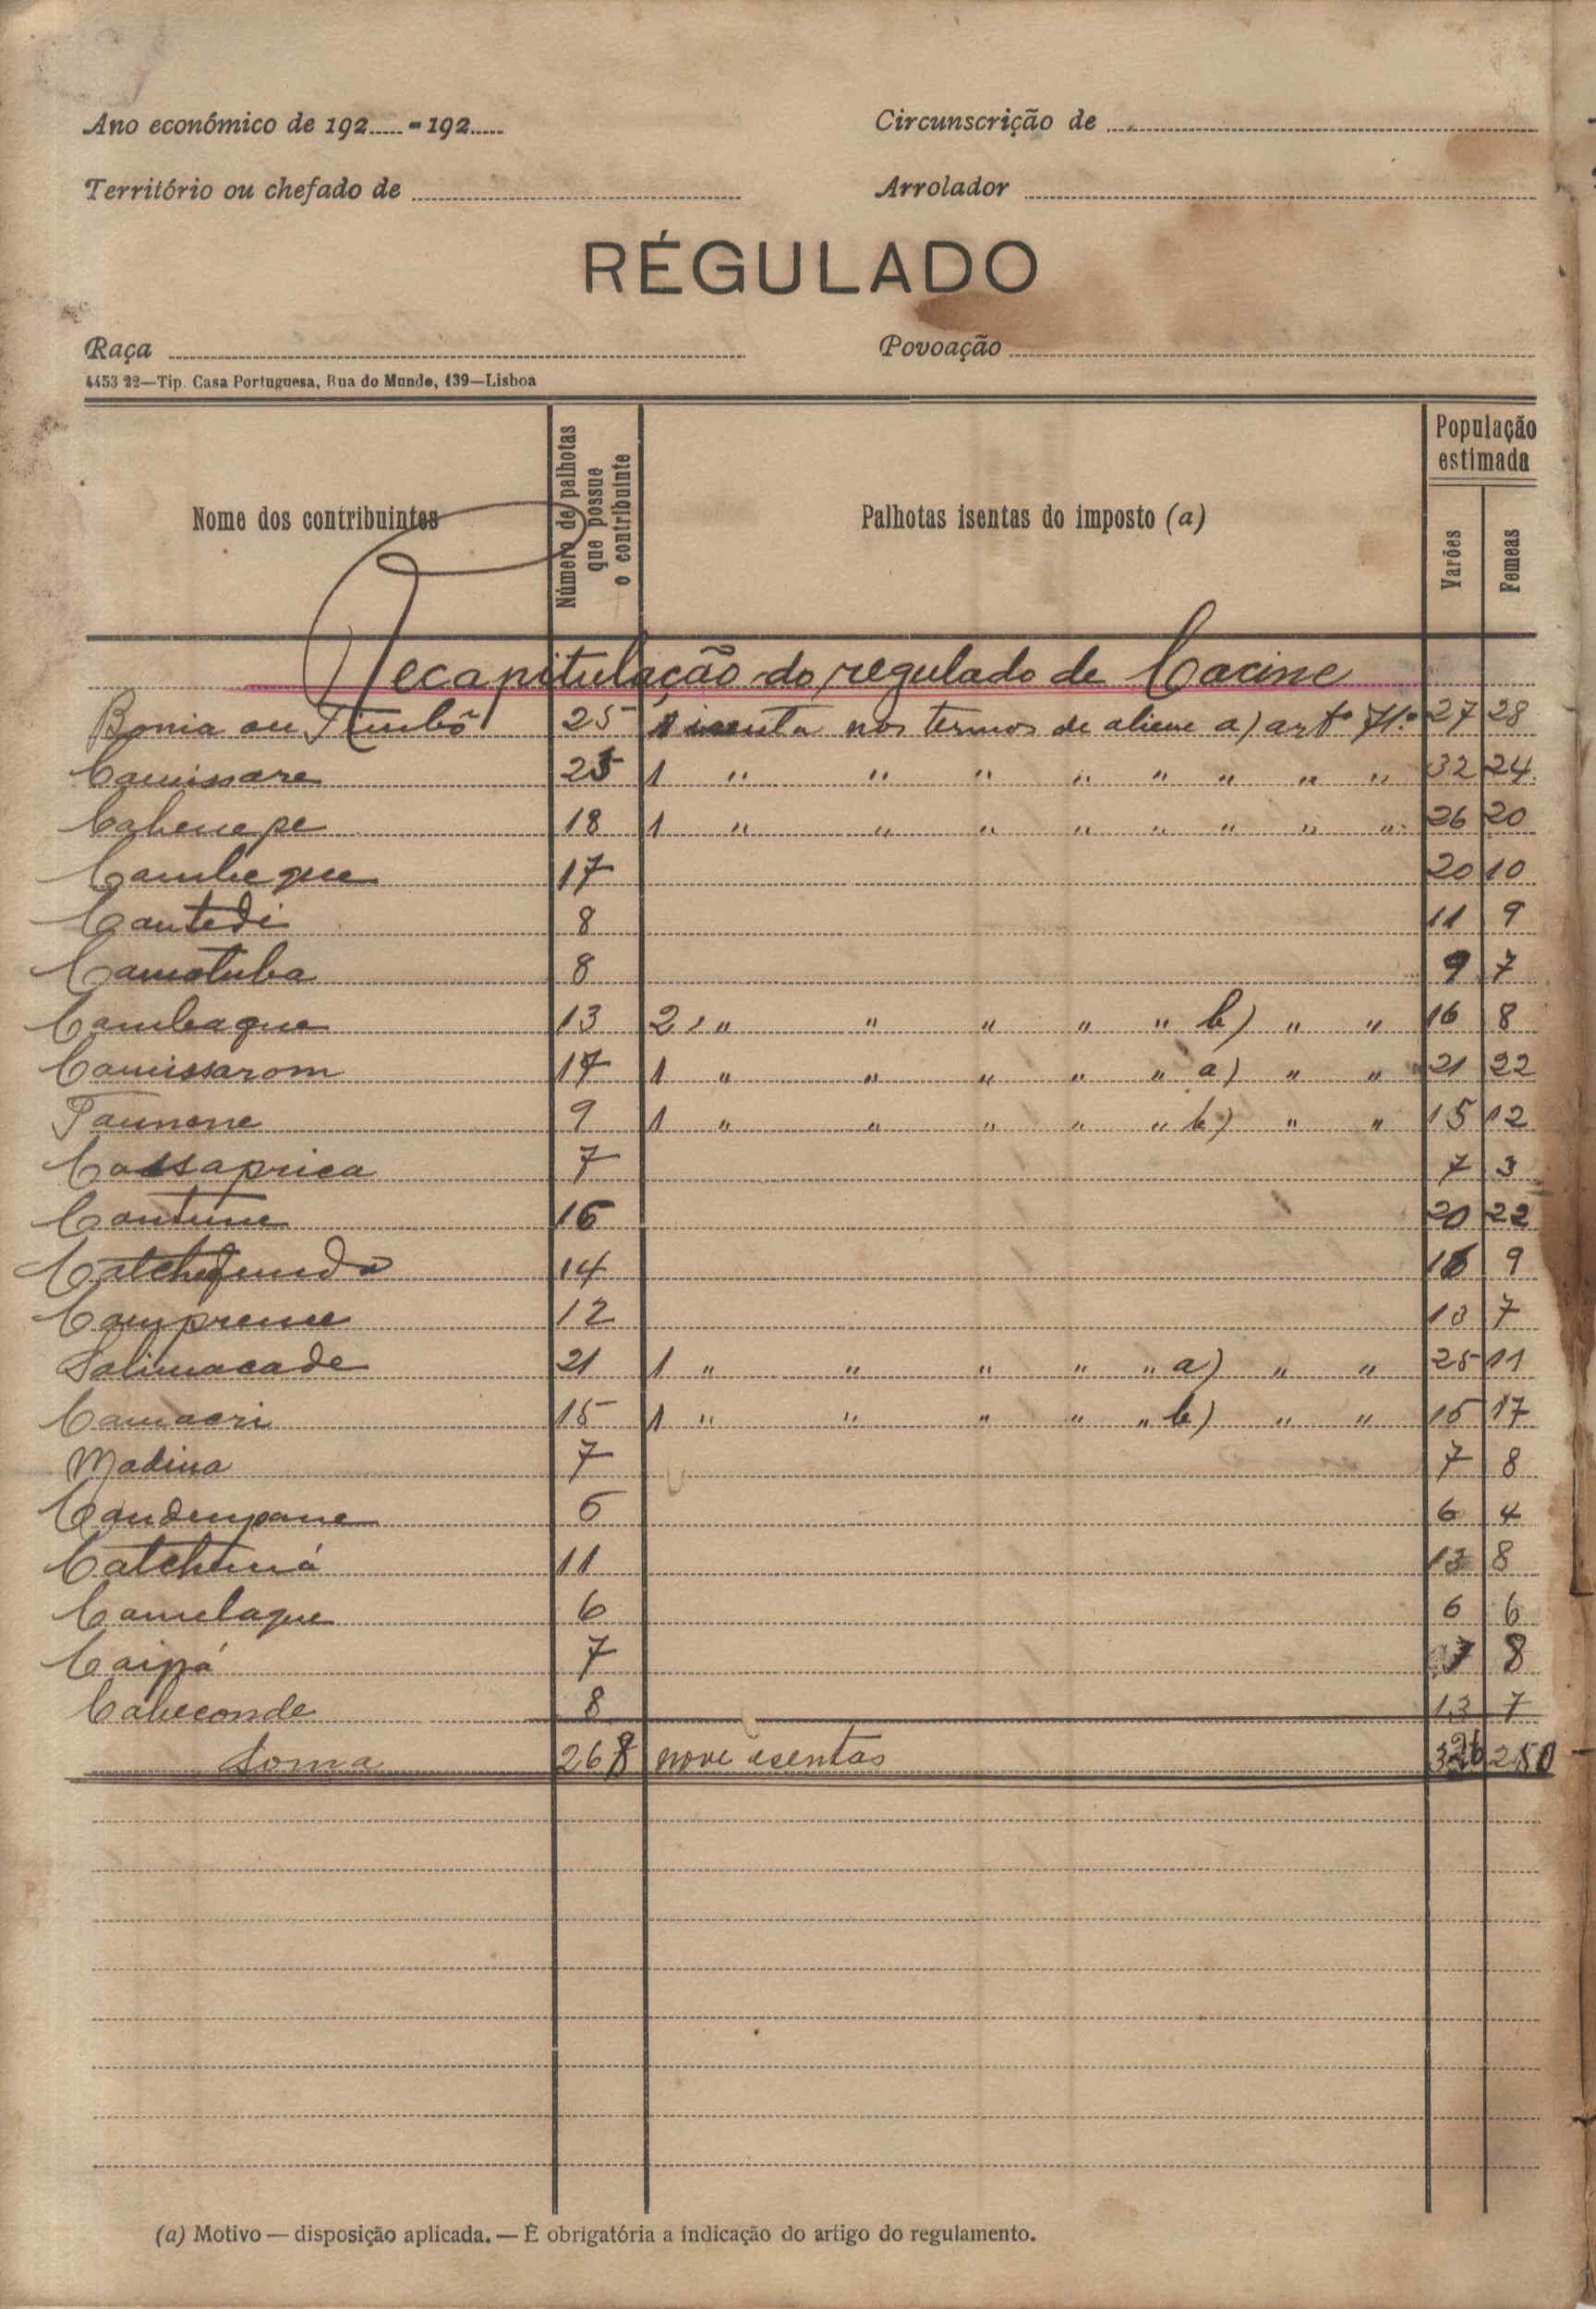 Ano económico de 192..... - 192.....
Circunscrição de
Território ou chefado de
Arrolador
RÉGULADO
Raça
Povoação
4453 22—Tip. Casa Portuguesa, Rua do Mundo, 139—Lisboa
Nome dos contribuintes
Número de palhotas que possue o contribuinte
Palhotas isentas do imposto (a)
População estimada
Varões
Femeas
Recapitulação do regulado de Cacine
Bonia ou Timbó 25 1 isenta nos termos de aliene a) artº 71º 27 28
Camissare 25 1 " " " " " " " " 32 24
Cabenepe 18 1 " " " " " " " " 26 20
Cambeque 17 20 10
Cantedi 8 11 9
Camotuba 8 9 7
Cambaque 13 2 " " " " " b) " " 16 8
Camissarom 17 1 " " " " " a) " " 21 22
9 1 " " " " " b) " " 15 12
Cassaprica 7 7 3
Cantune 16 20 22
14 16 9
12 13 7
Salimacade 21 1 " " " " " a) " " 25 11
Camacri 15 1 " " " " " b) " " 15 17
Madina 7 7 8
Candempane 5 6 4
Catchamá 11 13 8
Camelaque 6 6 6
Caipá 7 7 8
Cabeconde 8 13 7
Soma 268 nove isentas 326 250
(a) Motivo — disposição aplicada. — É obrigatória a indicação do artigo do regulamento.